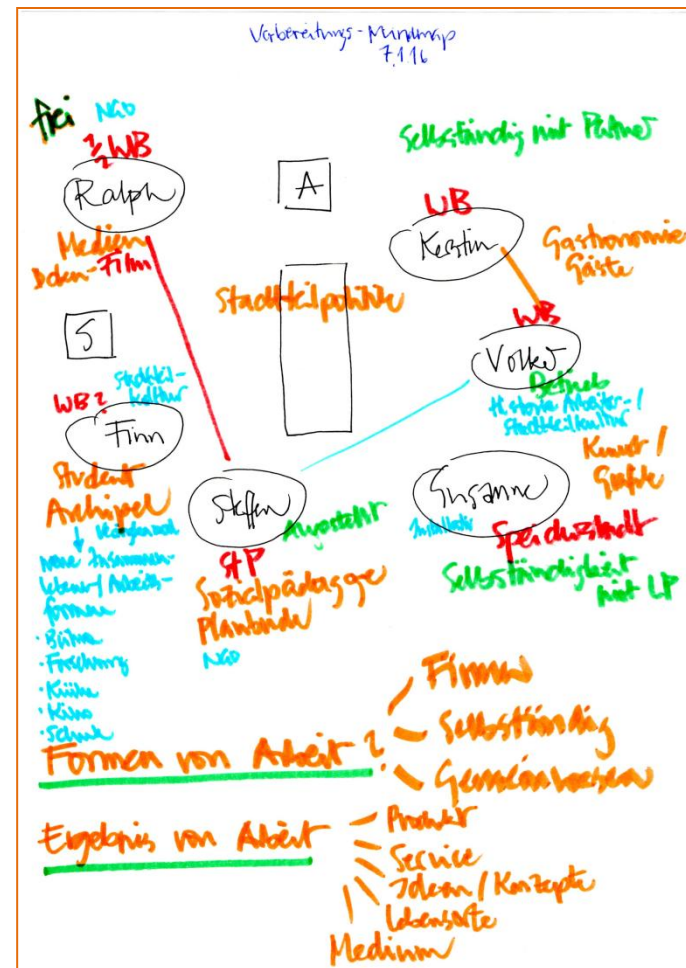 Vorbereitungs-Mindmap
7.1.16
frei
NGO
1/2 WB
Ralph
Medien
Doku-Film
A
Selbständig mit Partner
WB
Kerstin
Gastronomie
Gäste
Stadtteilpolitik
WB
Volker
Betrieb
Historie Arbeiter-/
Stadtteilkultur
Kunst/
Grafik
S
Stadtteil-
kultur
WB?
Finn
Student
Archipel
↓
neue Zusammen-
leben/Arbeits-
formen
· Bühne
· Forschung
· Küche
· Kino
· Schule
Steffen
Angestellt
StP
Sozialpädagoge
Planbude
NGO
Susanne
Speicherstadt
Selbständigkeit
mit LP
Formen von Arbeit?
Firmen
Selbständig
Gemeinwesen
Ergebnis von Arbeit
Produkt
Service
Ideen/Konzepte
Lebensorte
Medium